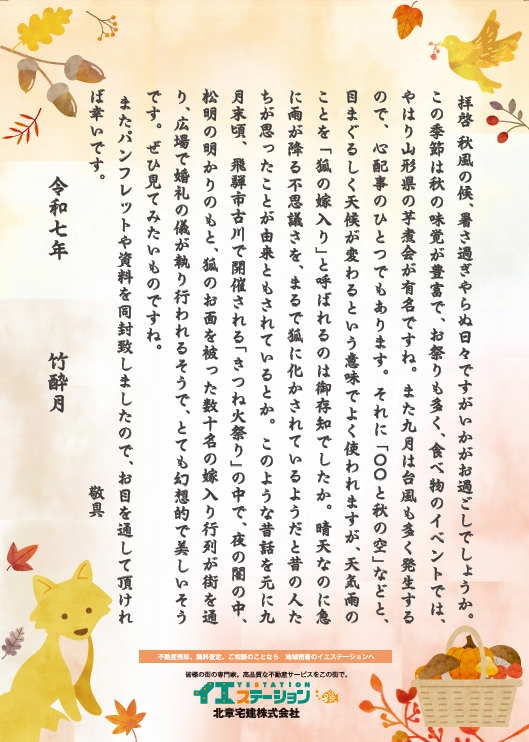 拝啓 秋風の候、暑さ過ぎやらぬ日々ですがいかがお過ごしでしょうか。
この季節は秋の味覚が豊富で、お祭りも多く、食べ物のイベントでは、
やはり山形県の芋煮会が有名ですね。また九月は台風も多く発生する
ので、心配事のひとつでもあります。それに「〇〇と秋の空」などと、
目まぐるしく天候が変わるという意味でよく使われますが、天気雨の
ことを「狐の嫁入り」と呼ばれるのは御存知でしたか。晴天なのに急
に雨が降る不思議さを、まるで狐に化かされているようだと昔の人た
ちが思ったことが由来ともされているとか。このような昔話を元に九
月末頃、飛騨市古川で開催される「きつね火祭り」の中で、夜の闇の中、
松明の明かりのもと、狐のお面を被った数十名の嫁入り行列が街を通
り、広場で婚礼の儀が執り行われるそうで、とても幻想的で美しいそう
です。ぜひ見てみたいものですね。
またパンフレットや資料を同封致しましたので、お目を通して頂けれ
ば幸いです。
敬具
令和七年 竹酔月
不動産売却、無料査定、ご相談のことなら 地域密着のイエステーションへ
皆様の街の専門家。高品質な不動産サービスをこの街で。
YESTATION
イエステーション
北章宅建株式会社